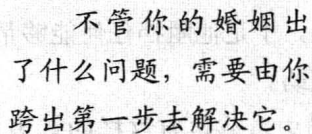 不管你的婚姻出
了什么问题，需要由你
跨出第一步去解决它。